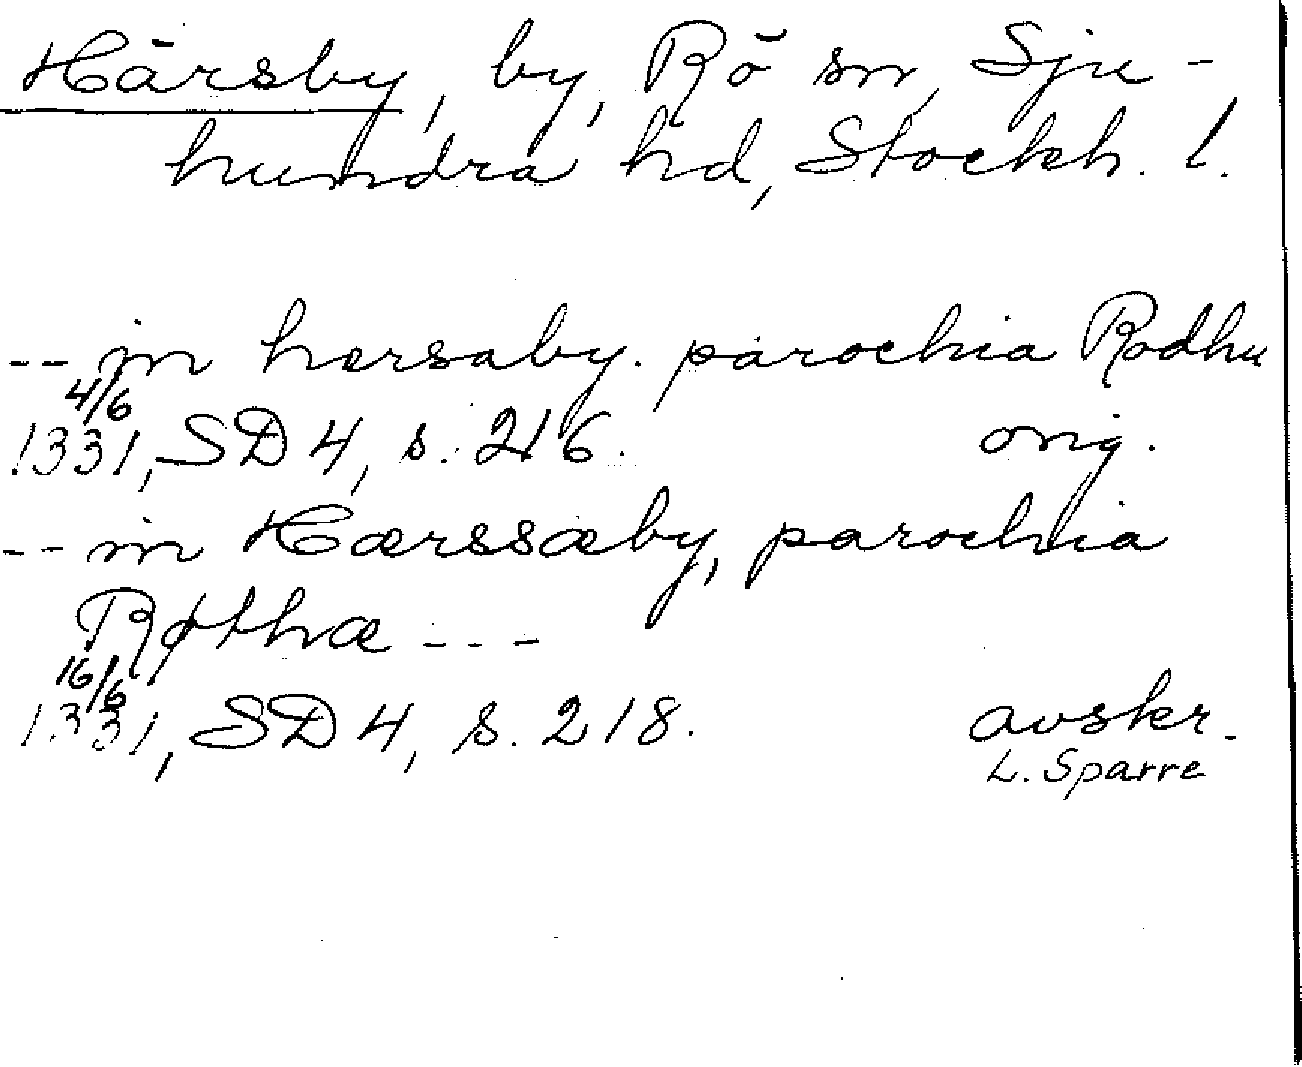 Härsby, by, Rö sn, Sju-
hundra hd, Stockh. l.
-- in hærsaby. parochia Rodhu
4/6
1331, SD 4, s. 216. orig.
-- in Hærssæby, parochia
Røthæ ---
16/6
1331, SD 4, s. 218. avskr.
L. Sparre